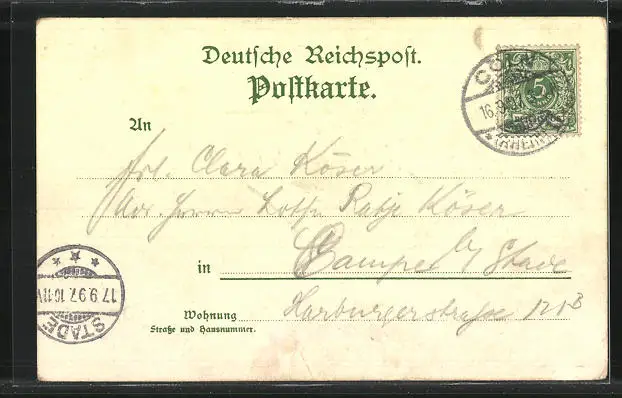 Deutsche Reichspost.
Postkarte.
CÖLN
16.9.97
(RHEIN)
5
An
Frl. Clara Köser
Adr. Herrn Raetje Köser
in Campe b/ Stade
Wohnung Harburgerstraße 121B
Straße und Hausnummer.
17.9.97. 10-11V
STADE